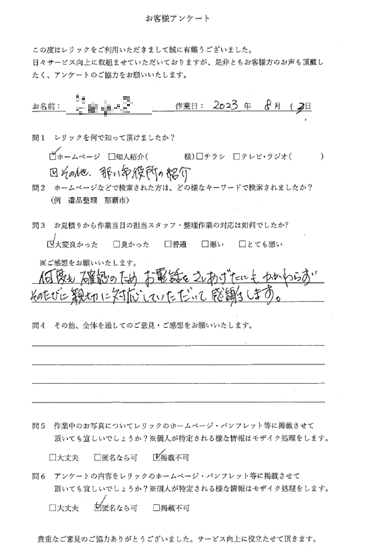 お客様アンケート
この度はレリックをご利用いただきまして誠に有難うございました。
日々サービス向上に取組ませていただいておりますが、是非ともお客様方のお声も頂戴し
たく、アンケートのご協力をお願いいたします。
お名前： 作業日： 2023 年 8 月 日
問1 レリックを何で知って頂けましたか？
☑ホームページ □知人紹介( 様) □チラシ □テレビ・ラジオ( )
☑その他、 市役所の紹介
問2 ホームページなどで検索された方は、どの様なキーワードで検索されましたか？
(例 遺品整理 那覇市)
問3 お見積りから作業当日の担当スタッフ・整理作業の対応は如何でしたか？
☑大変良かった □良かった □普通 □悪い □とても悪い
※ご感想をお願いいたします。
何度も確認のためお電話をさしあげたにもかかわらず
そのたびに親切に対応していただいて感謝します。
問4 その他、全体を通してのご意見・ご感想をお願いいたします。
問5 作業中のお写真についてレリックのホームページ・パンフレット等に掲載させて
頂いても宜しいでしょうか？※個人が特定される様な情報はモザイク処理をします。
□大丈夫 □匿名なら可 ☑掲載不可
問6 アンケートの内容をレリックのホームページ・パンフレット等に掲載させて
頂いても宜しいでしょうか？※個人が特定される様な情報はモザイク処理をします。
□大丈夫 ☑匿名なら可 □掲載不可
貴重なご意見のご協力ありがとうございました。サービス向上に役立たせて頂きます。